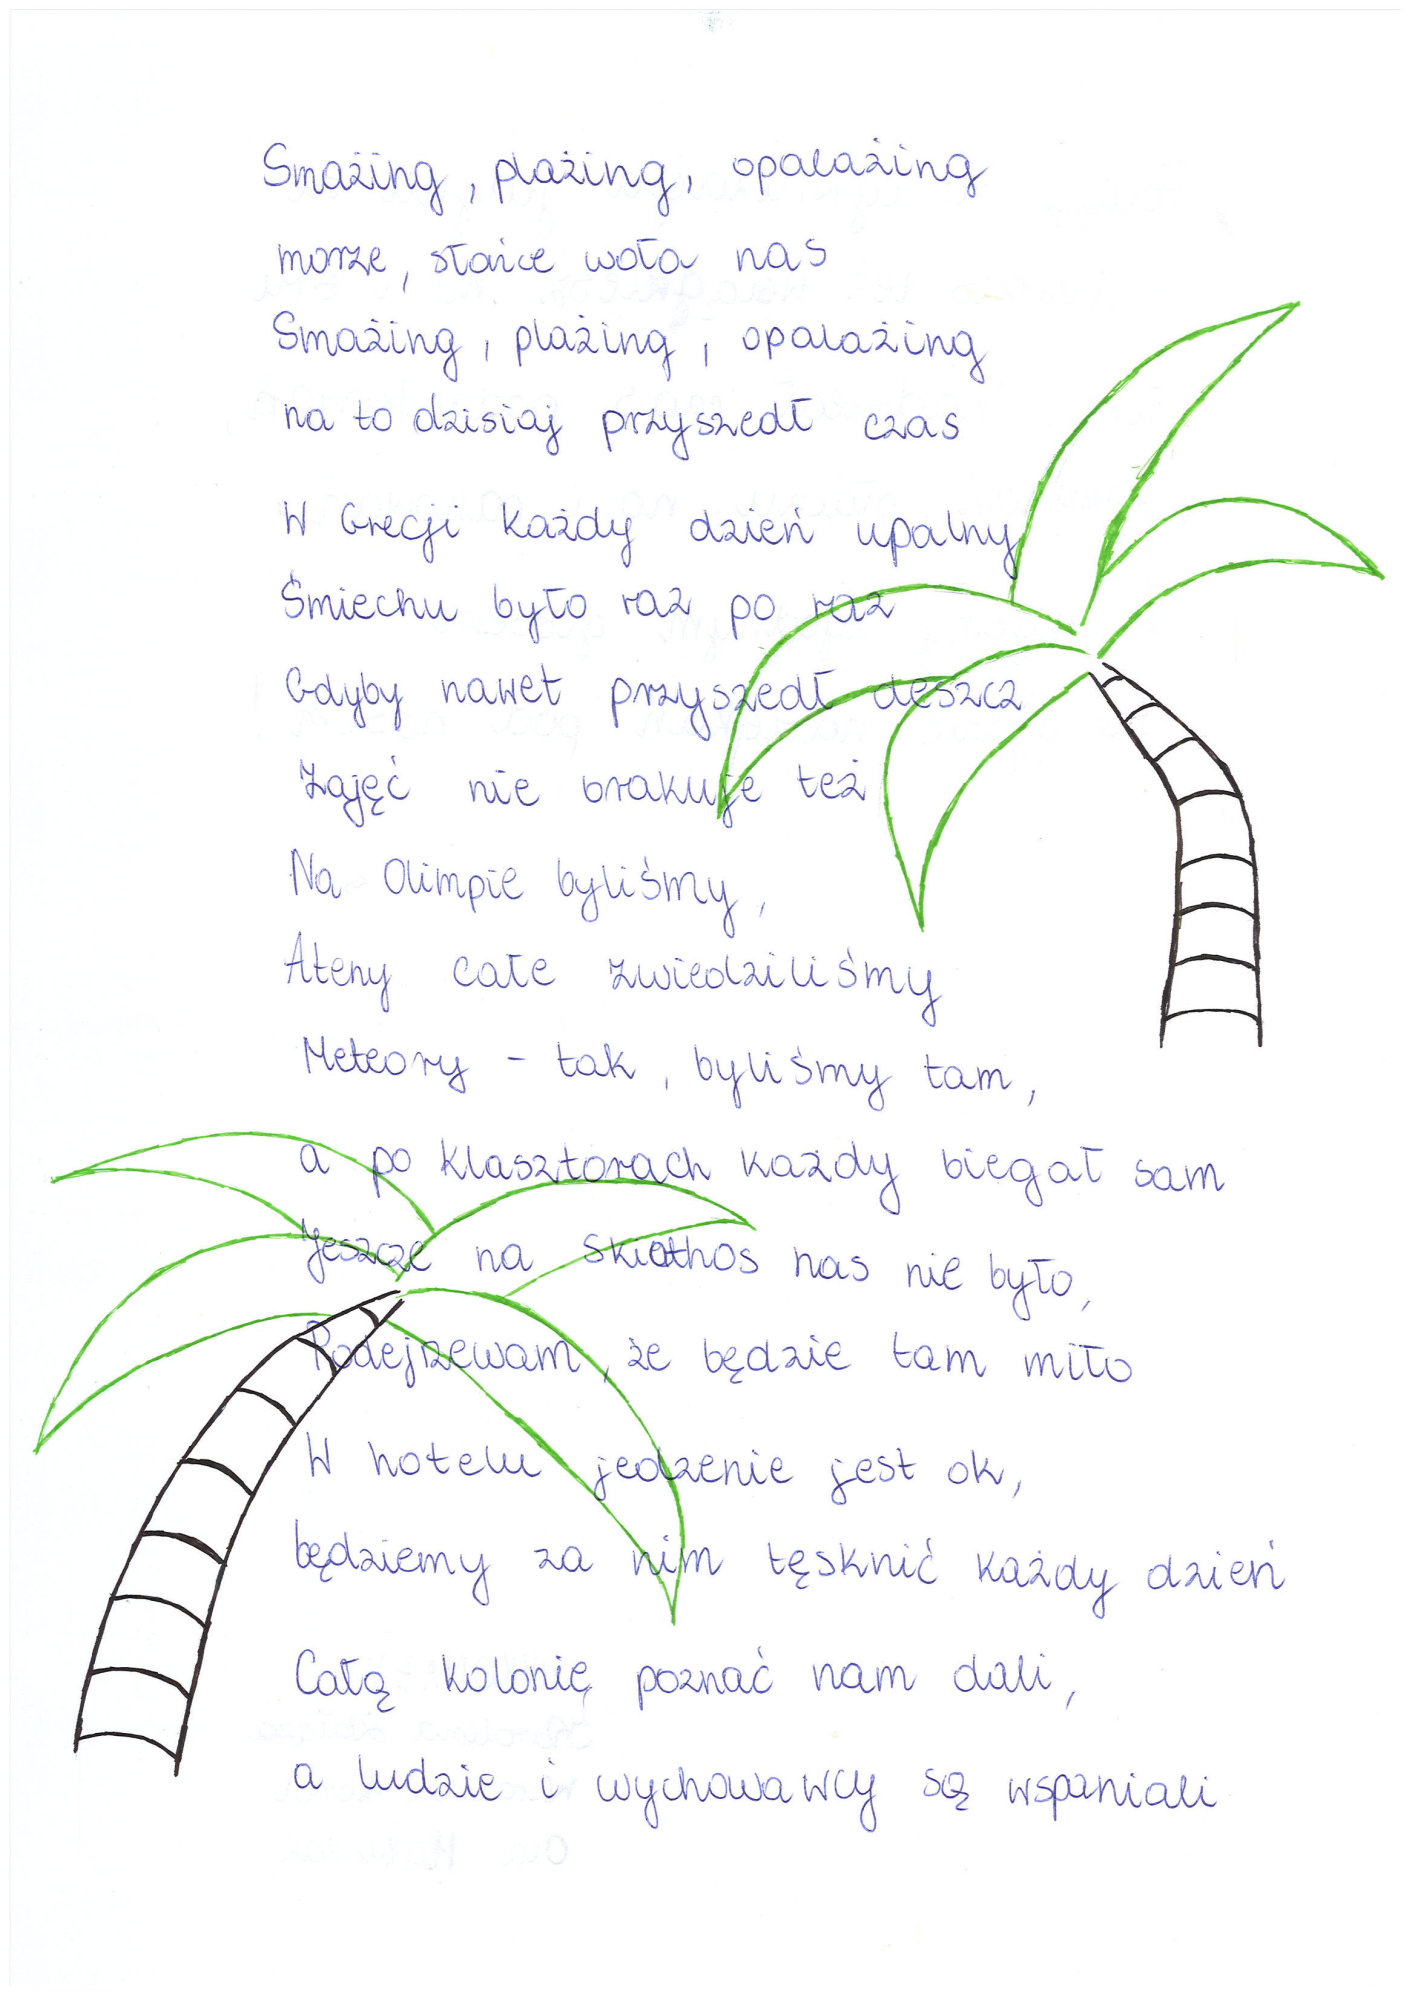 Smażing, plażing, opalażing
morze, słońce woła nas
Smażing, plażing, opalażing
na to dzisiaj przyszedł czas
W Grecji każdy dzień upalny
Śmiechu było raz po raz
Gdyby nawet przyszedł deszcz
Zajęć nie brakuje też
Na Olimpie byliśmy,
Ateny całe zwiedziliśmy
Meteory - tak, byliśmy tam,
a po klasztorach każdy biegał sam
Jeszcze na Skiathos nas nie było,
Podejrzewam, że będzie tam miło
W hotelu jedzenie jest ok,
będziemy za nim tęsknić każdy dzień
Całą kolonię poznać nam dali,
a ludzie i wychowawcy są wspaniali